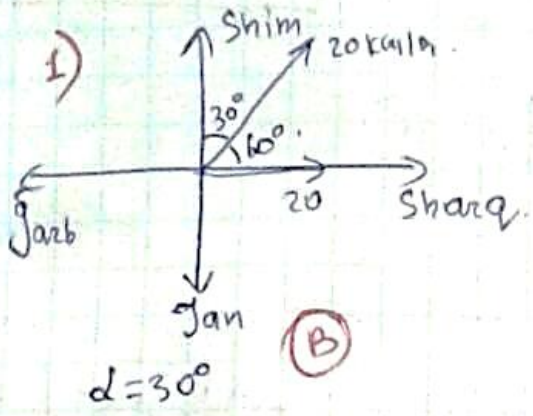 1)
Shim
20 km/h.
30°
60°.
20
G'arb
Sharq.
Jan
B
α=30°